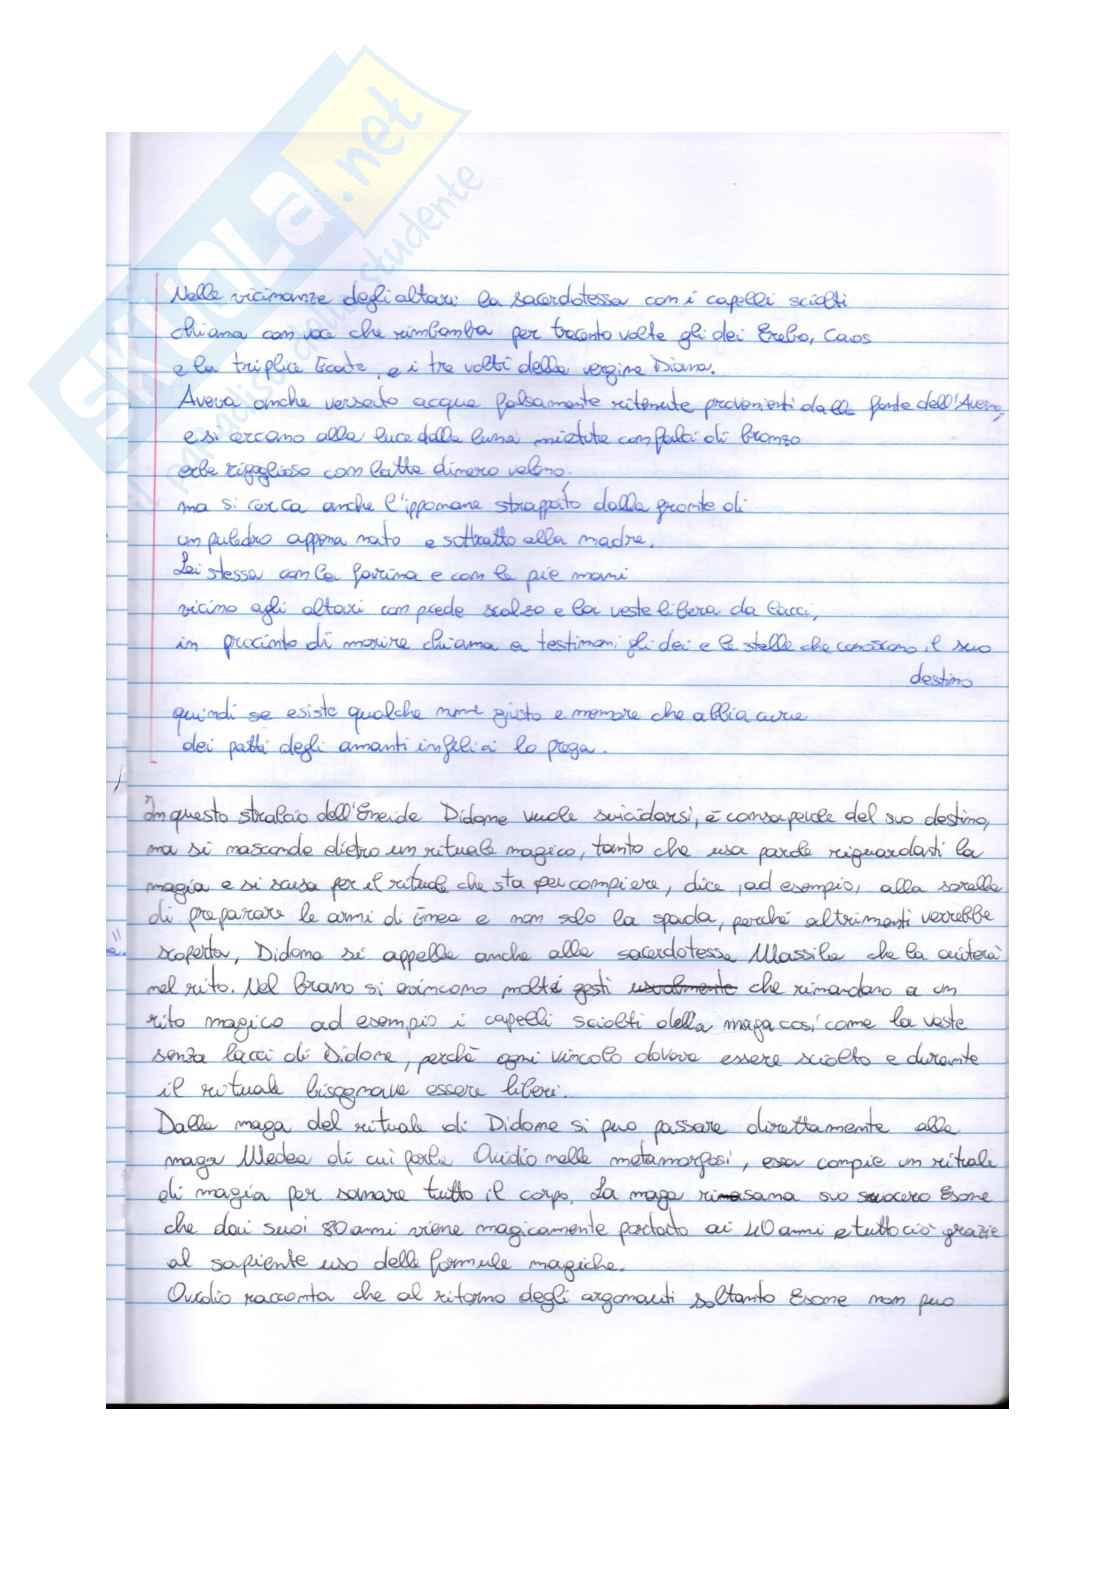 SKUOLA.net
il paradiso dello studente
Nelle vicinanze degli altari la sacerdotessa con i capelli sciolti
chiama con voce che rimbomba per trecento volte gli dei Erebo, Caos
e la triplice Ecate, e i tre volti della vergine Diana.
Aveva anche versato acque falsamente ritenute provenienti dalla fonte dell'Averno,
e si cercano alla luce della luna mietute con falci di bronzo
erbe rigogliose con latte di nero veleno,
ma si cerca anche l'ippomane strappato dalla fronte di
un puledro appena nato e sottratto alla madre.
Lei stessa con la farina e con le pie mani
vicino agli altari con piede scalzo e la veste libera da lacci,
in procinto di morire chiama a testimoni gli dei e le stelle che conoscono il suo
destino
quindi se esiste qualche nume giusto e memore che abbia cura
dei patti degli amanti infelici lo prega.
In questo stralcio dell'Eneide Didone vuole suicidarsi, è consapevole del suo destino,
ma si nasconde dietro un rituale magico, tanto che usa parole riguardanti la
magia e si scusa per il rituale che sta per compiere, dice, ad esempio, alla sorella
di preparare le armi di Enea e non solo la spada, perché altrimenti verrebbe
scoperta, Didone si appella anche alla sacerdotessa Massila che la aiuterà
nel rito. Nel brano si evincono molti gesti usualmente che rimandano a un
rito magico ad esempio i capelli sciolti della maga così come la veste
senza lacci di Didone, perchè ogni vincolo doveva essere sciolto e durante
il rituale bisognava essere liberi.
Dalla maga del rituale di Didone si puo passare direttamente alla
maga Medea di cui parla Ovidio nelle metamorfosi, essa compie un rituale
di magia per sanare tutto il corpo. La maga risana suo suocero Esone
che dai suoi 80 anni viene magicamente portato ai 40 anni e tutto ciò grazie
al sapiente uso delle formule magiche.
Ovidio racconta che al ritorno degli argonauti soltanto Esone non puo